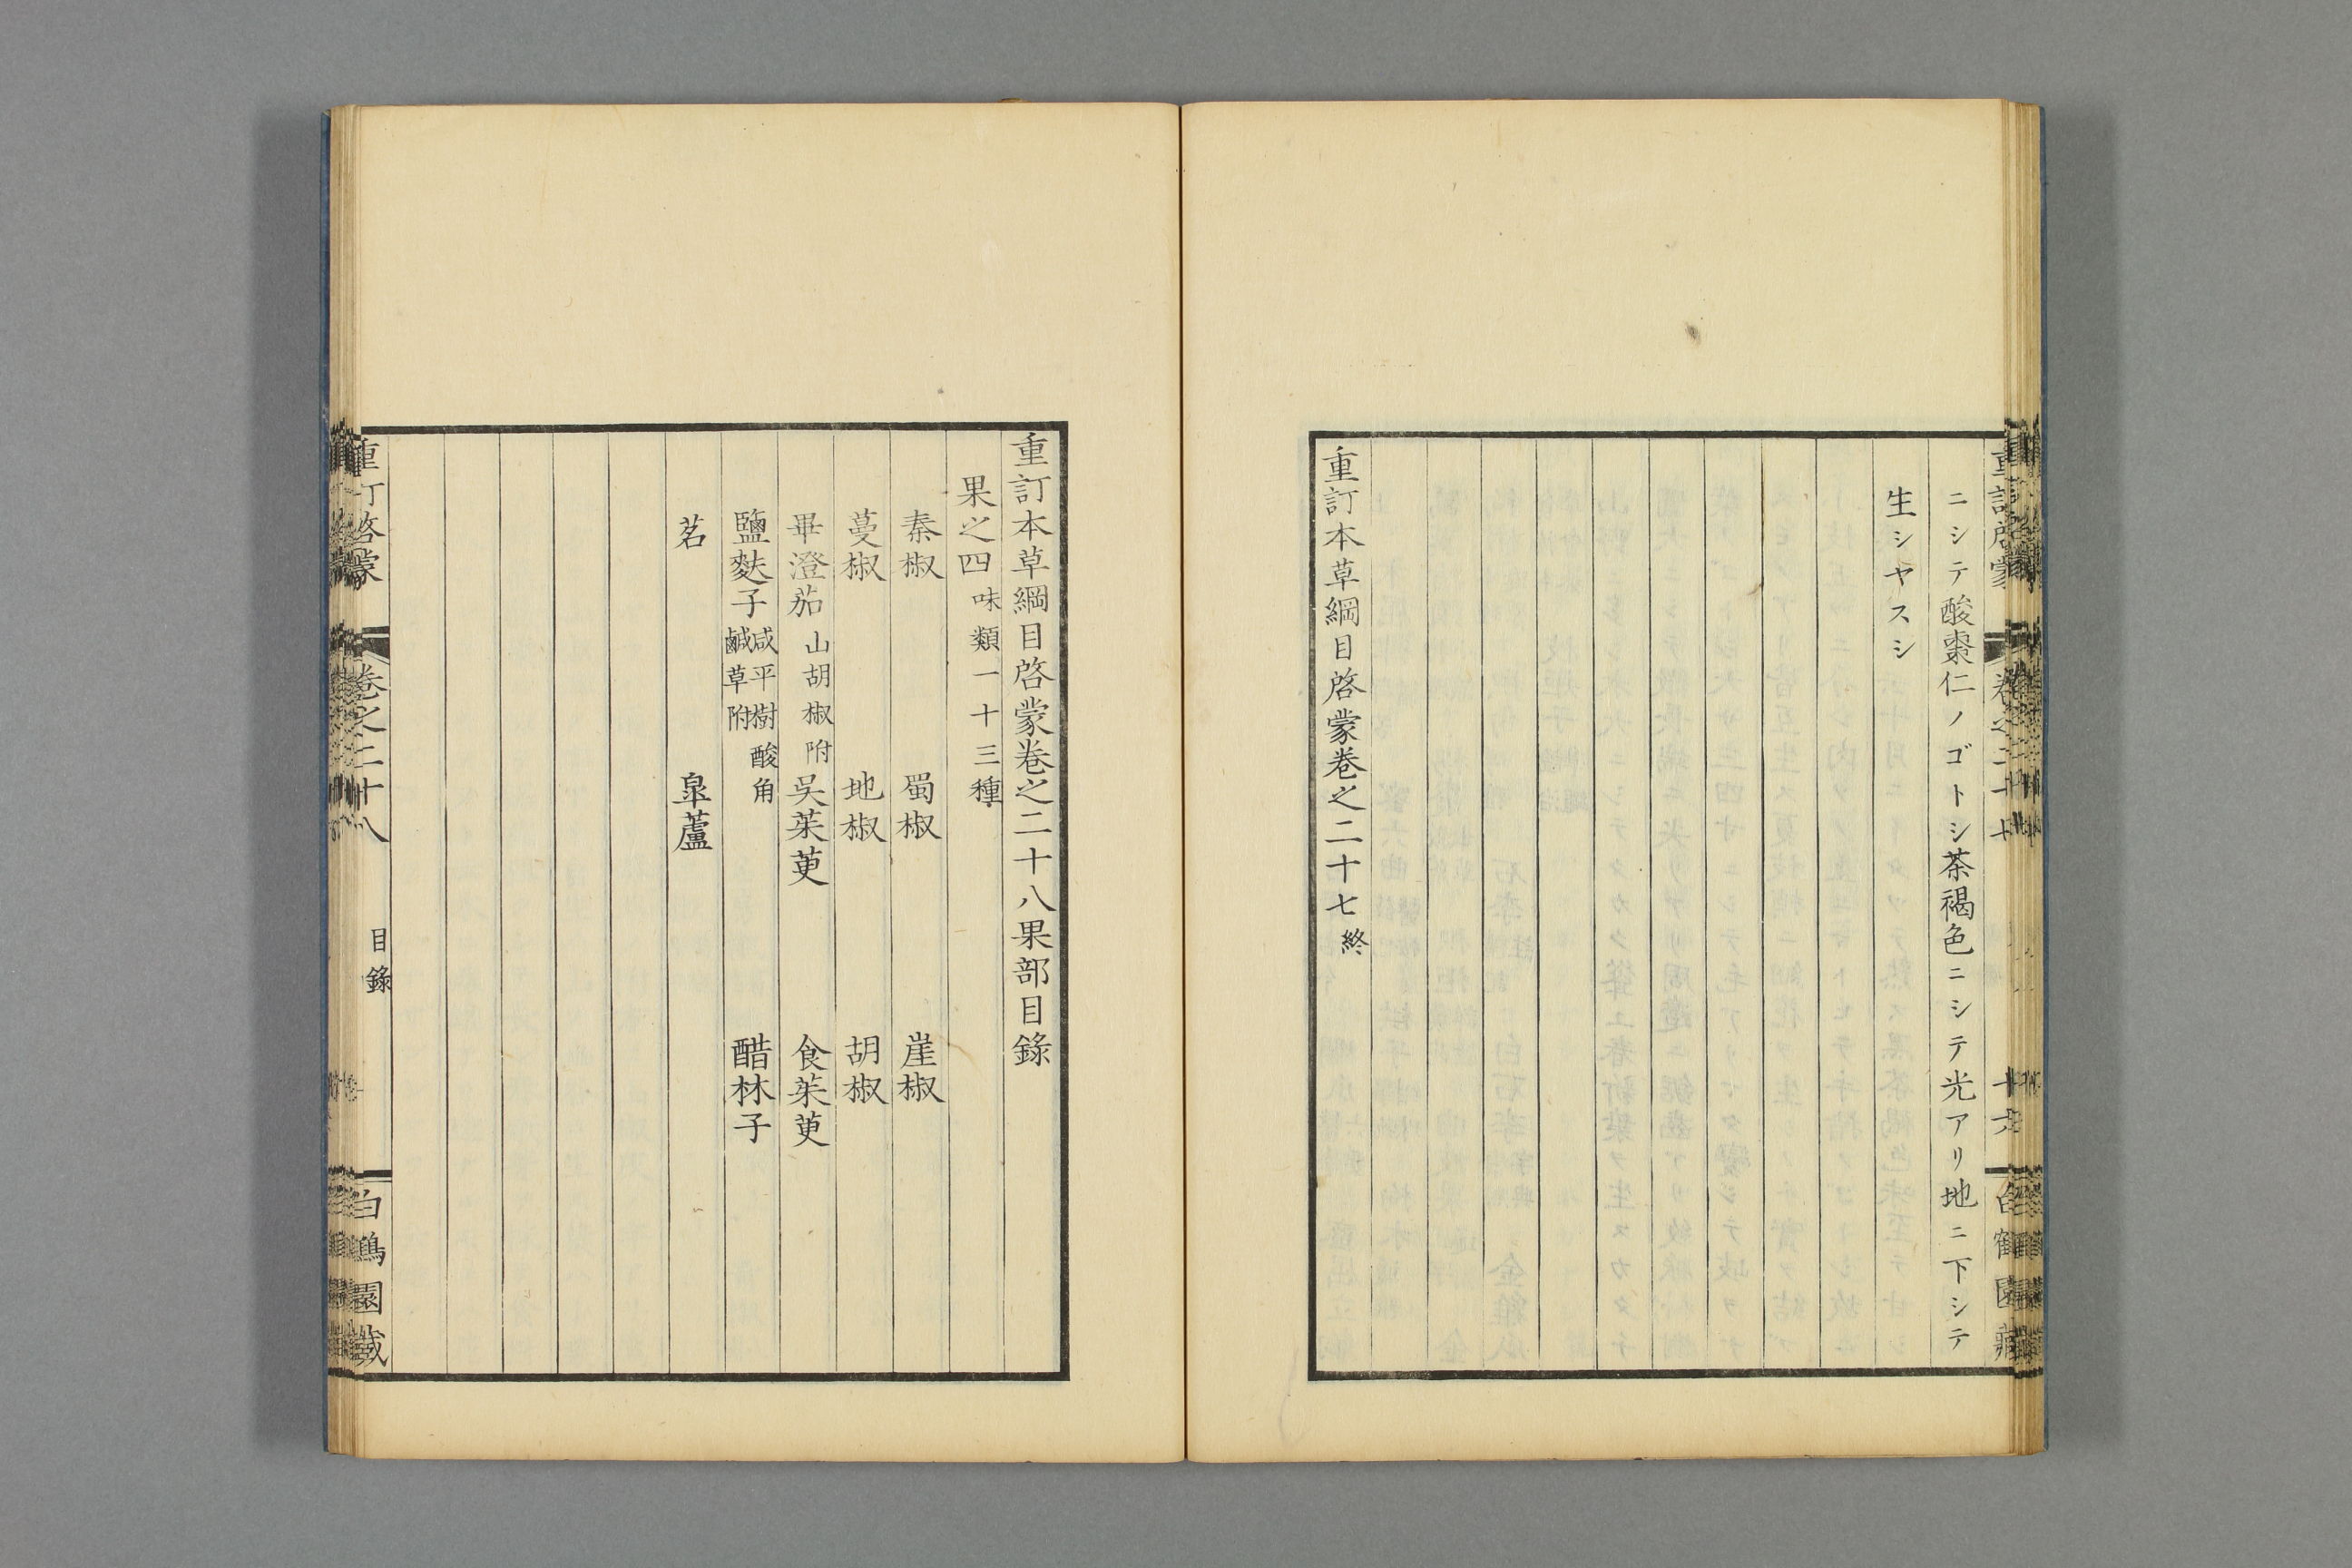 ニシテ酸棗仁ノゴトシ茶褐色ニシテ光アリ地ニ下シテ
生シヤスシ
重訂本草綱目啓蒙卷之二十七終
重訂本草綱目啓蒙卷之二十八果部目錄
果之四味類一十三種
秦椒 蜀椒 崖椒
蔓椒 地椒 胡椒
畢澄茄山胡椒附 吳茱萸 食茱萸
鹽麩子咸平樹酸角鹹草附 醋林子
茗 皐蘆
重訂啓蒙 卷之二十八 目錄 白鶴園藏